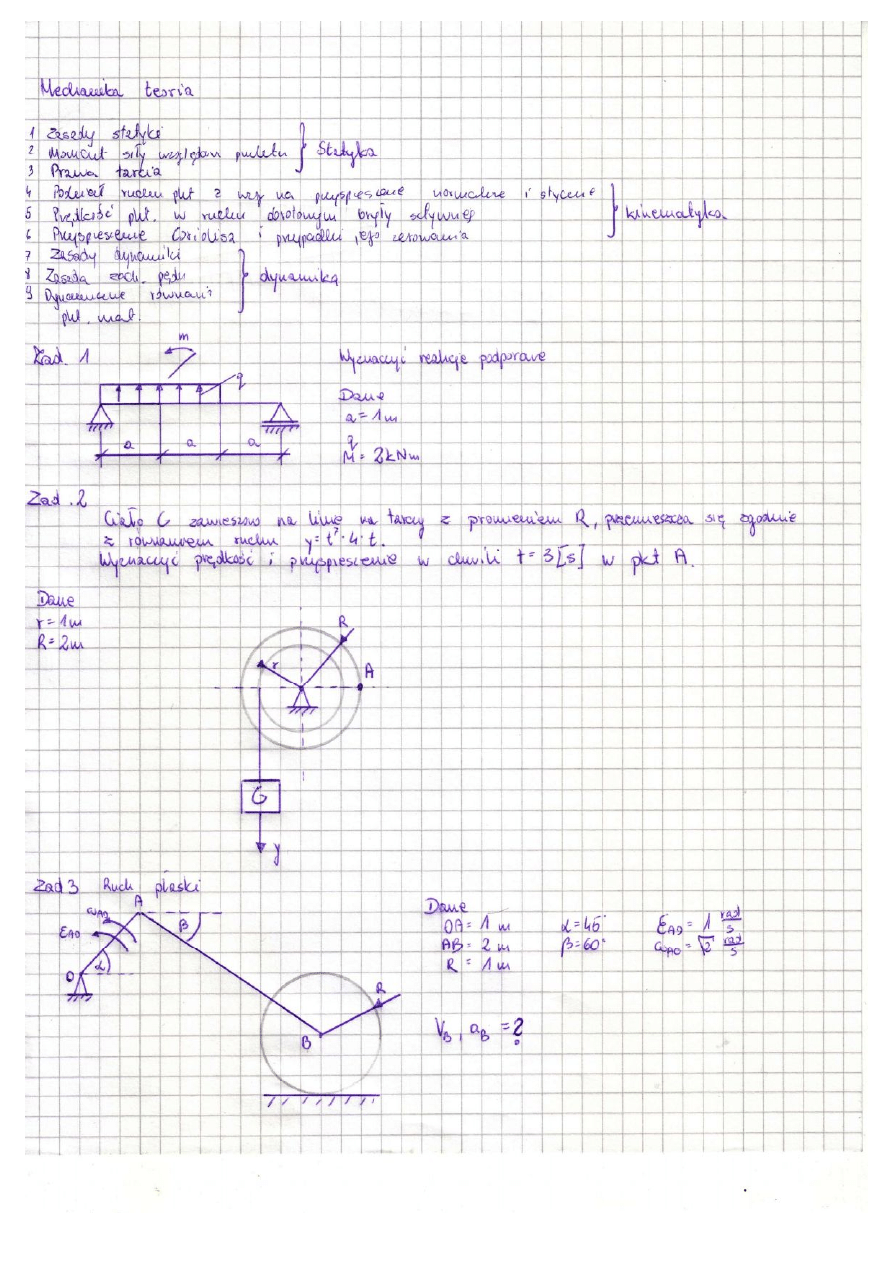 Mechanika teoria
1 Zasady statyki
2 Moment siły względem punktu } Statyka
3 Prawa tarcia
4 Podział ruchu pkt z wzg na przyspieszenie normalne i styczne
5 Prędkość pkt. w ruchu obrotowym bryły sztywnej } kinematyka
6 Przyspieszenie Coriolisa i przypadki jego zerowania
7 Zasady dynamiki
8 Zasada zach. pędu } dynamika
9 Dynamiczne równani
pkt. mat.
Zad. 1
Wyznaczyć reakcje podporowe
m
q
a a a
Dane
a = 1m
q
M = 2kNm
Zad. 2
Ciało G zawieszono na linie na tarczy z promieniem R, przemieszcza się zgodnie
z równaniem ruchu y= t²·4·t.
Wyznaczyć prędkość i przyspieszenie w chwili t= 3[s] w pkt A.
Dane
r = 1m
R = 2m
R
r
A
G
y
Zad 3 Ruch płaski
A
ωAO
εAO
β
α
O
B
R
Dane
OA = 1 m α = 45° εAO = 1 rad/s
AB = 2 m β = 60° ωAO = √2 rad/s
R = 1 m
VB, aB = ?